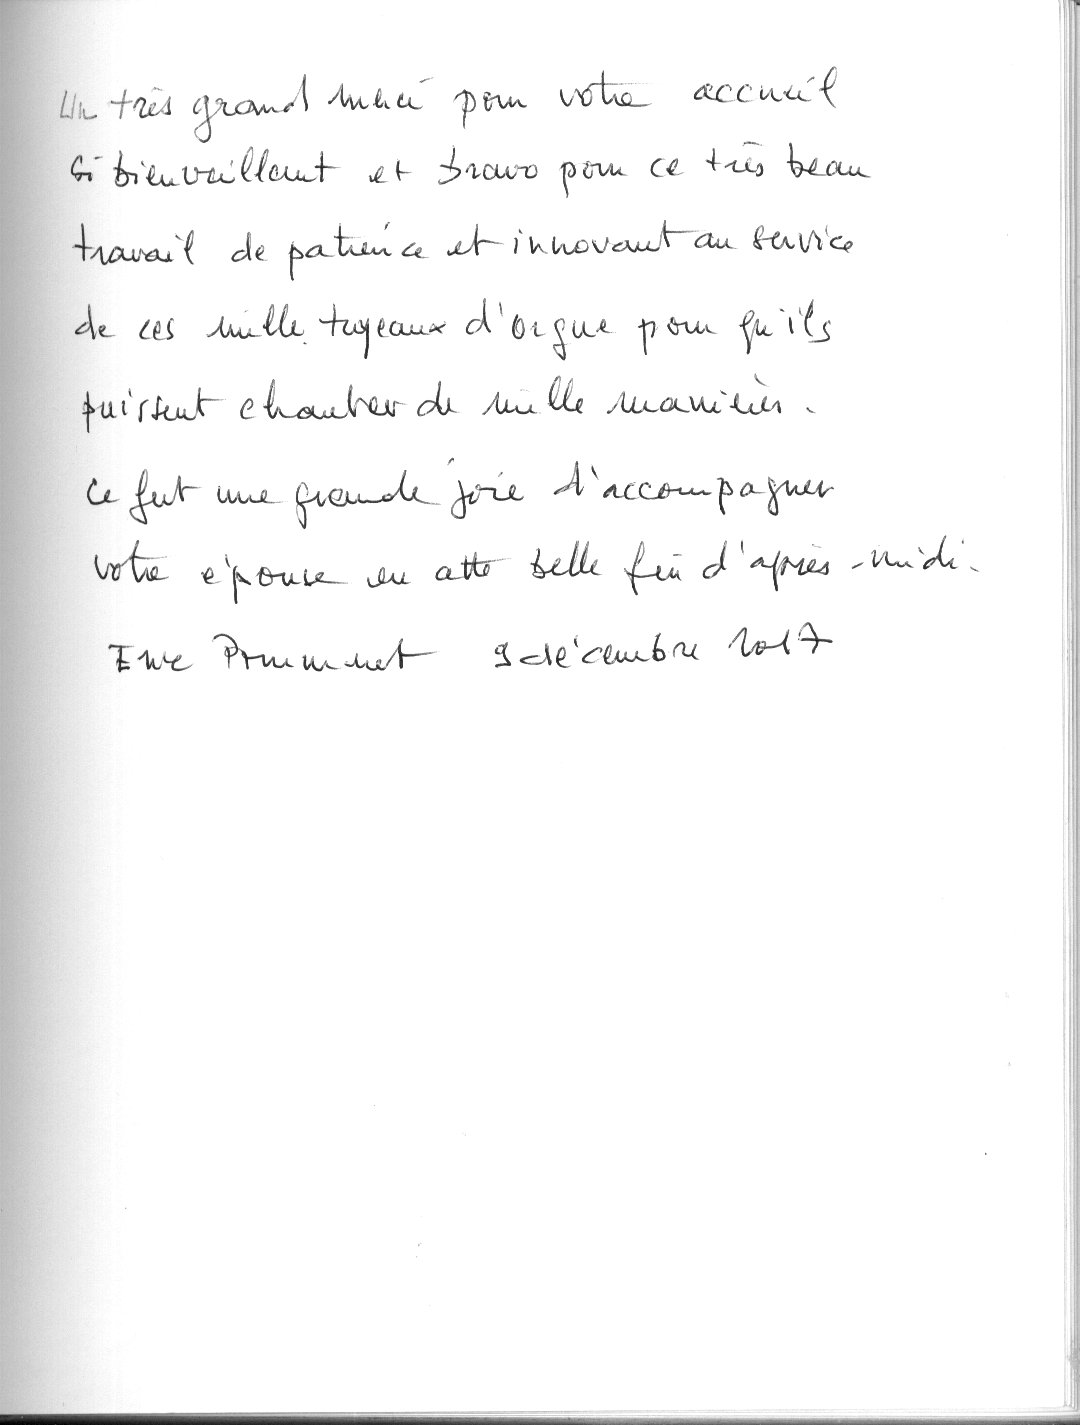 Un très grand merci pour votre accueil
si bienveillant et bravo pour ce très beau
travail de patience et innovant au service
de ces mille tuyeaux d'orgue pour qu'ils
puissent chanter de mille manières.
Ce fut une grande joie d'accompagner
votre épouse en cette belle fin d'après-midi.
9 décembre 2017